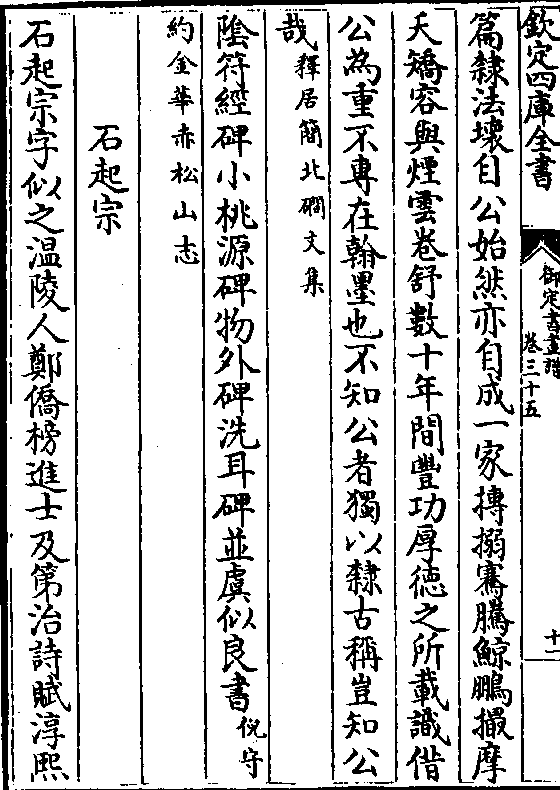 欽定四庫全書
御定書畫譜
卷三十五
十一
篇隸法壞自公始然亦自成一家摶搦騫騰鯨鵬撮摩
夭矯容與煙雲卷舒數十年間豐功厚徳之所載識偕
公為重不專在翰墨也不知公者獨以隸古稱豈知公
哉釋居簡北磵文集
陰符經碑小桃源碑物外碑洗耳碑並虞似良書倪守
約金華赤松山志
石起宗
石起宗字似之温陵人鄭僑榜進士及第治詩賦淳熙